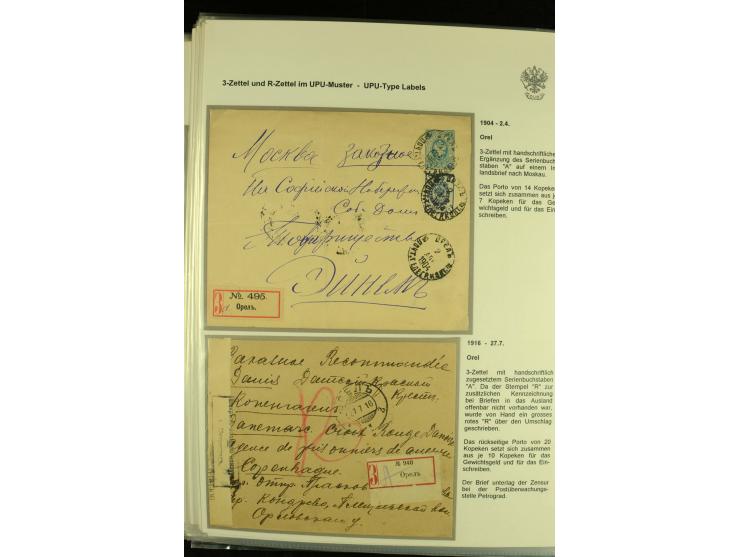 3-Zettel und R-Zettel im UPU-Muster - UPU-Type Labels
1904 - 2.4.
Orel
3-Zettel mit handschriftliche
Ergänzung des Serienbuch
staben "A" auf einem In
landsbrief nach Moskau.
Das Porto von 14 Kopeken
setzt sich zusammen aus je
7 Kopeken für das Ge
wichtsgeld und für das Ein
schreiben.
Москва заказное
На Софійской Набережн
Соб. Домъ
Товарищество
Эйнемъ
ОРЕЛЪ
2
1904
№ 495.
З
Орелъ.
1916 - 27.7.
Orel
3-Zettel mit handschriftlich
zugesetztem Serienbuchstaben
"A". Da der Stempel "R" zur
zusätzlichen Kennzeichnung
bei Briefen in das Ausland
offenbar nicht vorhanden war,
wurde von Hand ein grosses
rotes "R" über den Umschlag
geschrieben.
Das rückseitige Porto von 20
Kopeken setzt sich zusammen
aus je 10 Kopeken für das
Gewichtsgeld und für das Ein-
schreiben.
Der Brief unterlag der Zensur
bei der Postüberwachung-
stelle Petrograd.
Recommandée
Danis Датскій Красный
Крестъ
Копенгагенъ
Croix Rouge
de prisonniers de
Copenhague
R
№ 940
З A
Орелъ